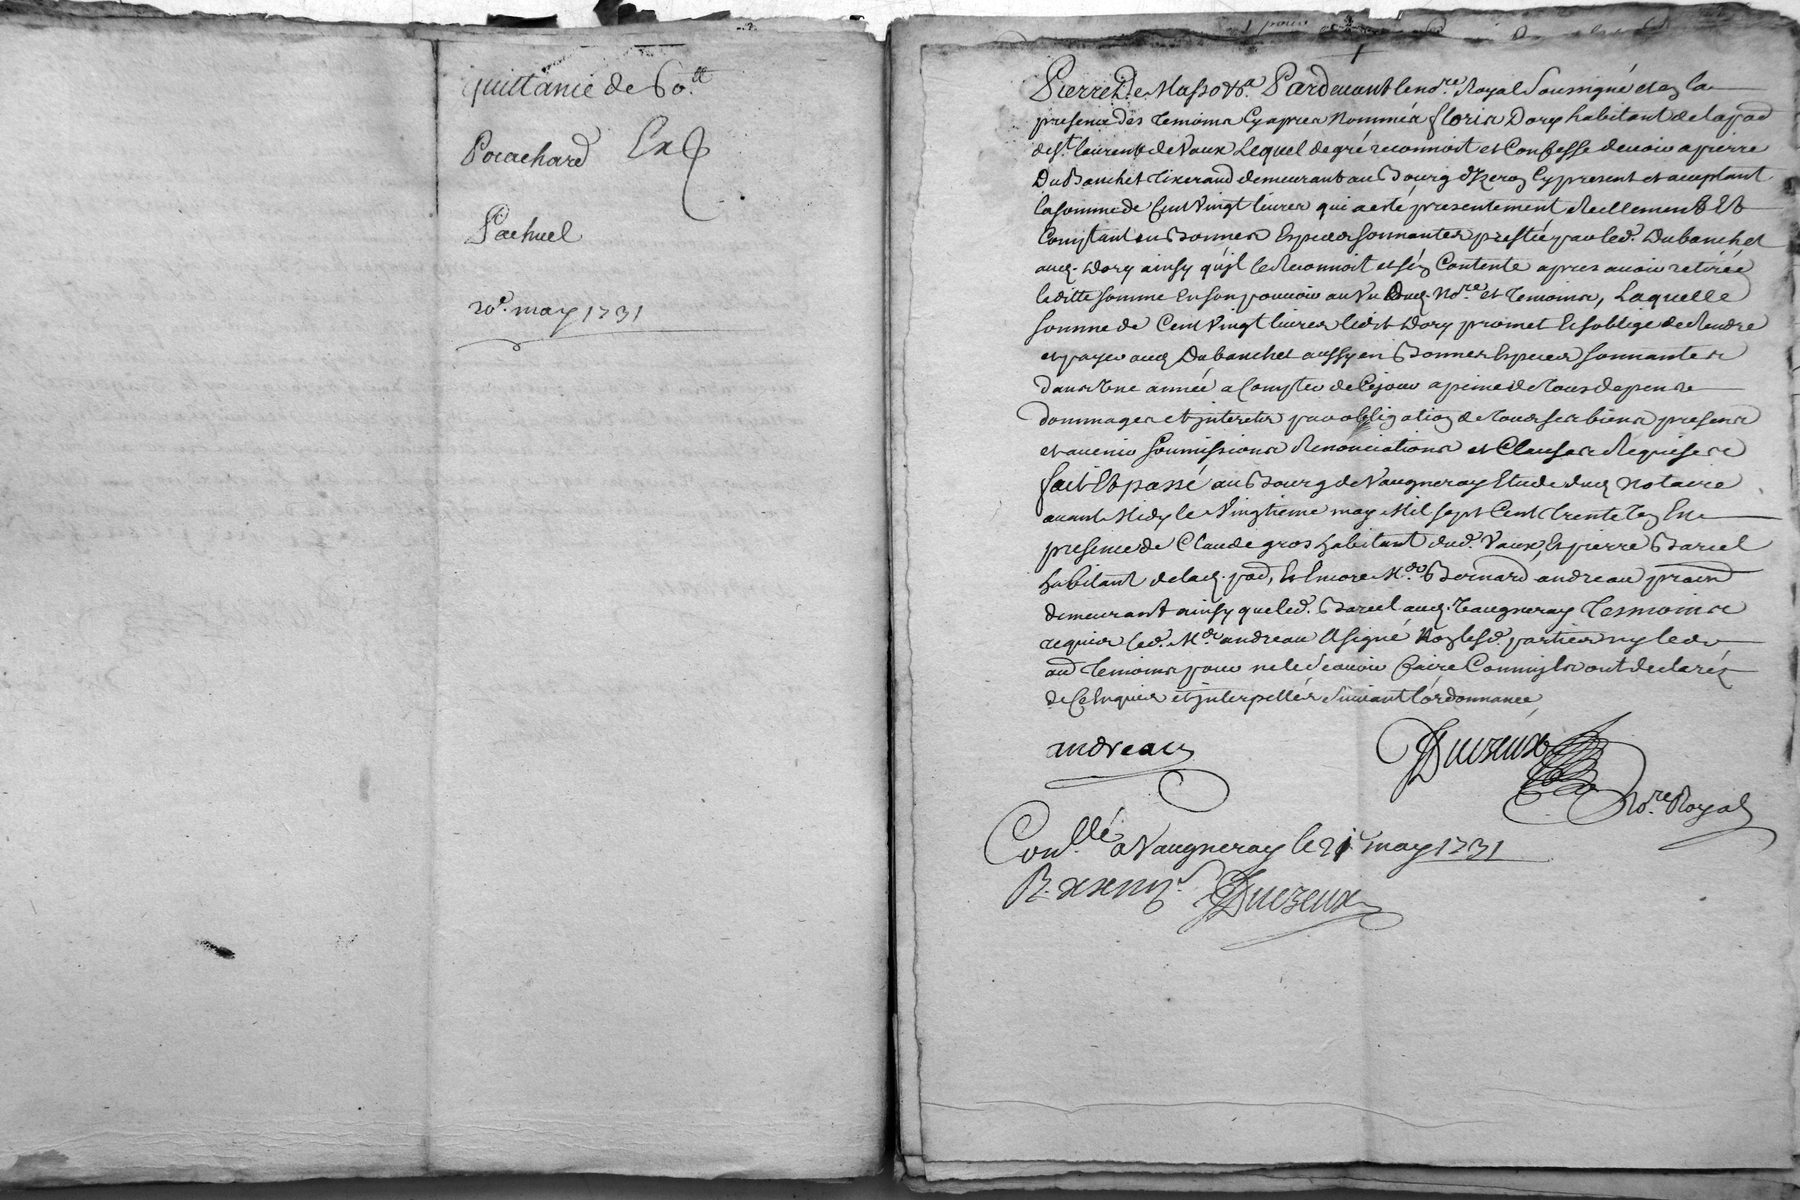 quittance de 60.tt
Porachard Exp
Pachuel
20e. may 1731
Pardevant le no.re Royal Soussigné et en la
presence des temoins cy apres Nommés floris Dory habitant de la parr
de St. laurent de Vaux Lequel de gré reconnoit et Confesse devoir a pierre
Dubanchet tixerand demeurant au Bourg d'Izeron cy present et acceptant
la somme de Cent Vingt livres qui a esté presentement Reellement Et
Comptant en Bonnes Especes sonnantes prestée par led. Dubanchet
aud. Dory ainsy qu'jl le Reconnoit et s'en Contente apres avoir retirée
laditte somme En son pouvoir au Vu dud. No.re et temoins, Laquelle
somme de Cent Vingt livres ledit Dory promet Et s'oblige de Rendre
et payer aud. Dubanchet aussy en Bonnes Especes sonnantes
dans Une année a Compter de Ce jour a peine de tous depens
dommages et jnterets par obligation de tous ses biens presens
et avenir soumissions Renonciations et Clauses Requises
fait Et passé au Bourg de Vaugneray Etude dud. Notaire
avant Midy le Vingtieme may Mil sept Cent trente Un En
presence de Claude gros habitant dud. Vaux, Et pierre Bariel
habitant de lad. par, Et Encore Me. Bernard andreau prat.
demeurant ainsy que led. Bariel aud. Vaugneray tesmoins
requis led. Me. andreau A signé Non lesd. parties ny led.
au.. temoins pour ne le sçavoir faire Comm'jls ont declarés
de Ce Enquis et jnterpellés suivant l'ordonnance,
andreau
Duvzeux
No.re Royal
Con.llé a Vaugneray le 21 may 1731
Duvzeux